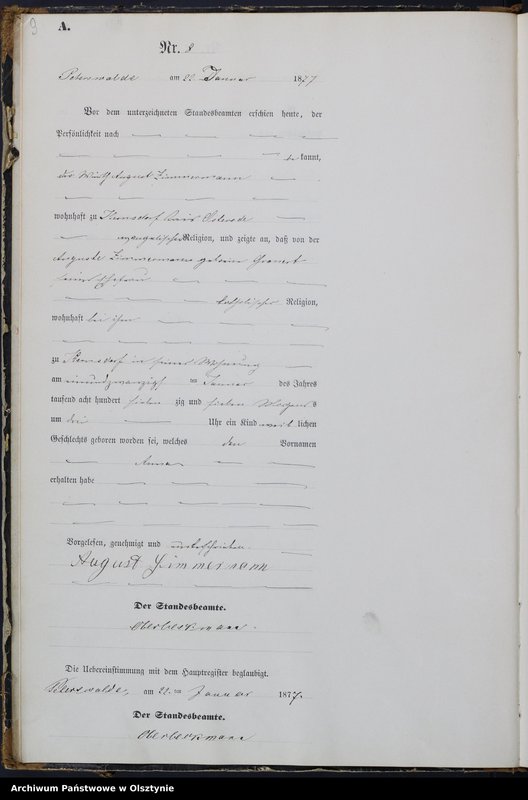 9
A.
Nr. 8
Peterswalde am 22 Januar 1877
Vor dem unterzeichneten Standesbeamten erschien heute, der
Persönlichkeit nach
be kannt,
der Wirth August Zimmermann
wohnhaft zu Kreis Osterode
evangelischer Religion, und zeigte an, daß von der
Auguste Zimmermann geborne
seiner Ehefrau
katholischer Religion,
wohnhaft bei ihm
zu in seiner Wohnung
am einundzwanzigsten Januar des Jahres
tausend acht hundert sieben zig und sieben s
um drei Uhr ein Kind weib lichen
Geschlechts geboren worden sei, welches den Vornamen
Anna
erhalten habe
Vorgelesen, genehmigt und unterschrieben
August Zimmermann
Der Standesbeamte.
Oberbeckmann
Die Uebereinstimmung mit dem Hauptregister beglaubigt.
Peterswalde, am 22.ten Januar 1877.
Der Standesbeamte.
Oberbeckmann
Archiwum Państwowe w Olsztynie